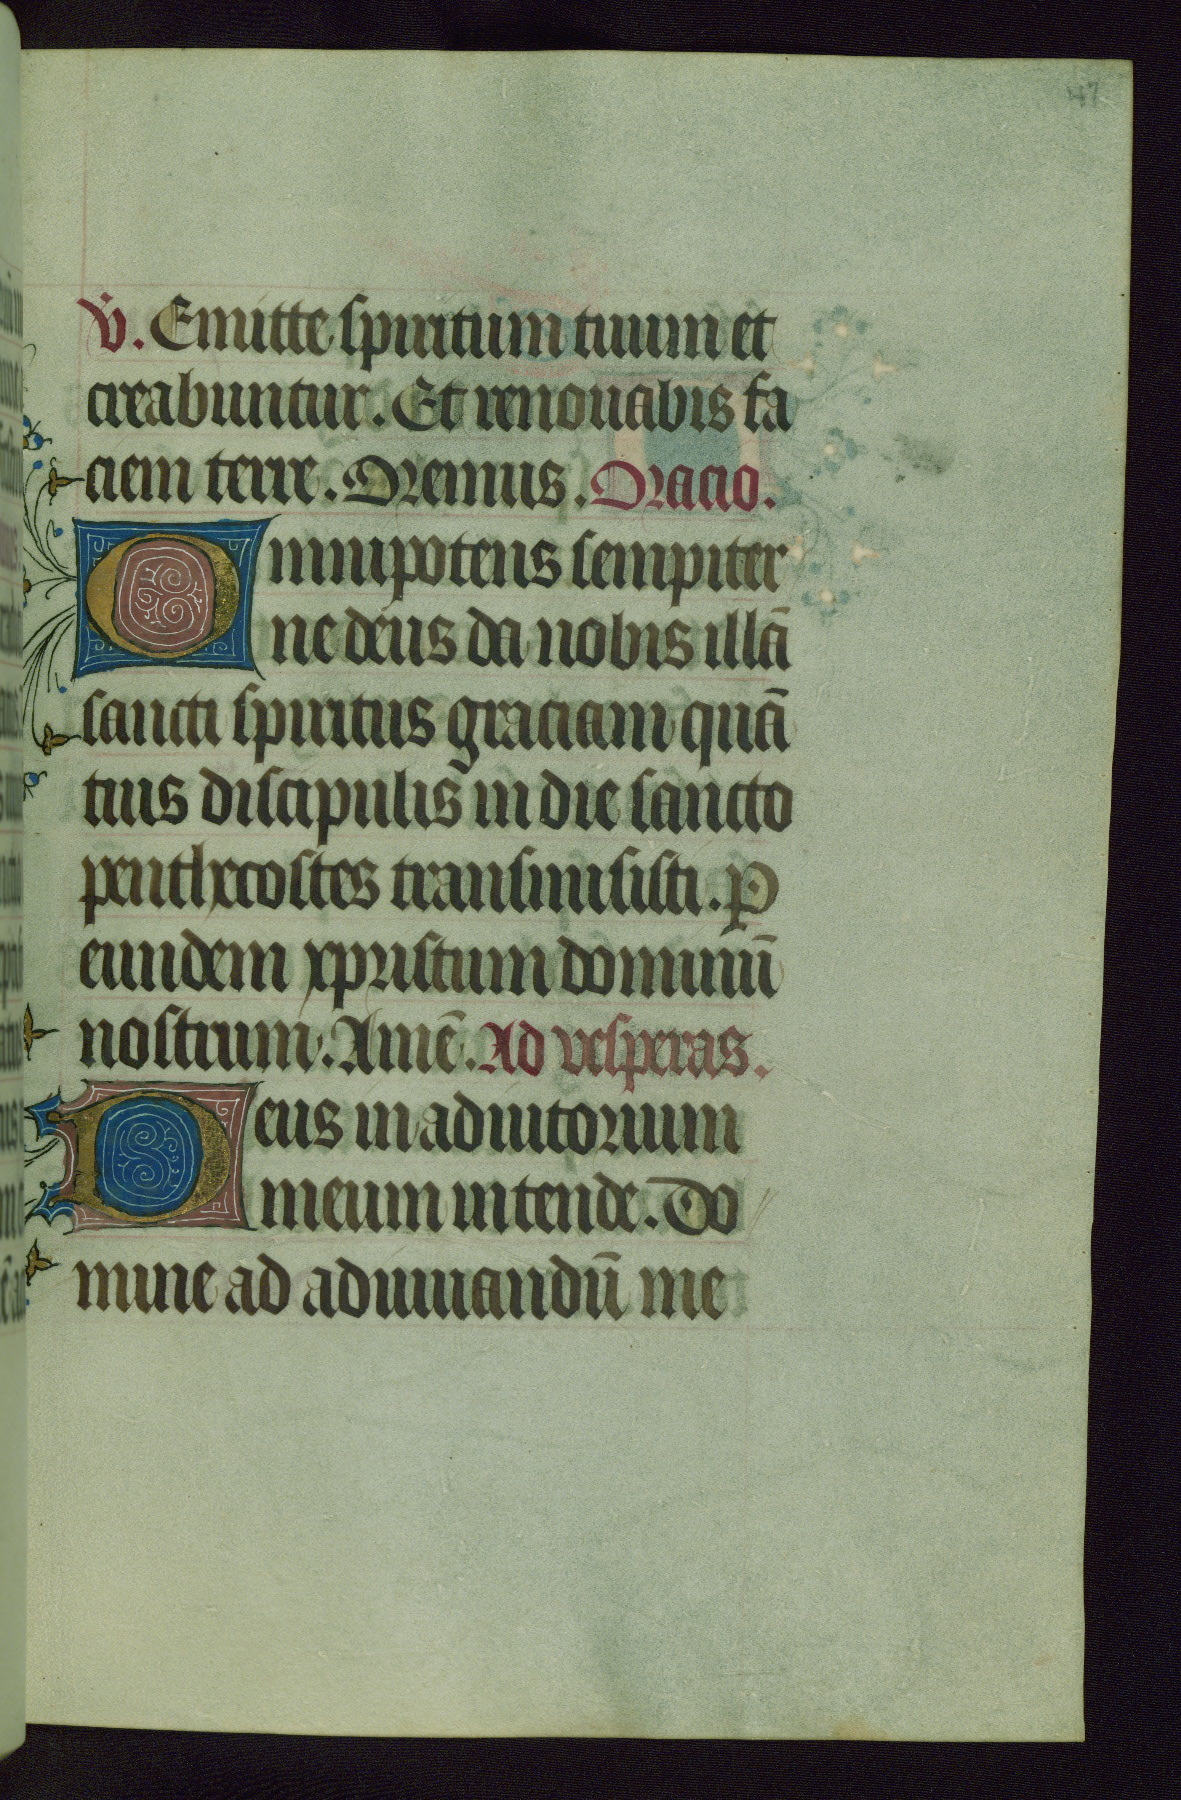 47
V̄. Emitte spiritum tuum et
creabuntur. Et renouabis fa
ciem terre. Oremus. Oracio.
Omnipotens sempiter
ne deus da nobis illā
sancti spiritus graciam quā
tuis discipulis in die sancto
penthecostes transmisisti. P
eundem xpristum dominū
nostrum. Amē. Ad vesperas.
Deus in adiutorium
meum intende. Do
mine ad adiuuandū me